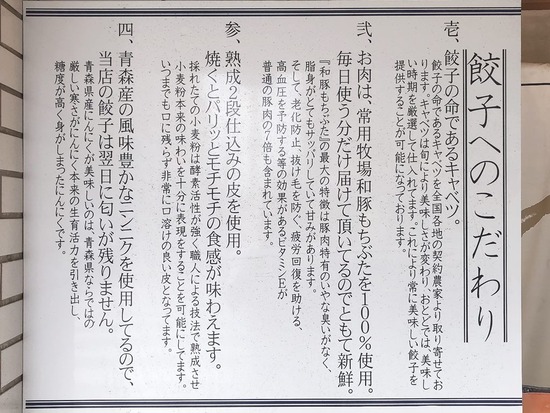 餃子へのこだわり
壱、餃子の命であるキャベツ。
餃子の命であるキャベツを全国各地の契約農家より取り寄せてお
ります。キャベツは旬により美味しさが変わり、おとどでは、美味し
い時期を厳選して仕入れてます。これにより常に美味しい餃子を
提供することが可能になっております。
弐、お肉は、常用牧場和豚もちぶたを100%使用。
毎日使う分だけ届けて頂いてるのでともて新鮮。
『和豚もちぶた』の最大の特徴は豚肉特有のいやな臭いがなく、
脂身がとてもサッパリしていて甘みがあります。
そして、老化防止、抜け毛を防ぐ、疲労回復を助ける、
高血圧を予防する等の効果があるビタミンEが
普通の豚肉の7倍も含まれています。
参、熟成2段仕込みの皮を使用。
焼くとパリッとモチモチの食感が味わえます。
採れたての小麦粉は酵素活性が強く職人による技法で熟成させ
小麦粉本来の味わいを十分に表現をすることを可能にしてます。
いつまでも口に残らず非常に口溶けの良い皮となってます。
四、青森産の風味豊かなニンニクを使用してるので、
当店の餃子は翌日に匂いが残りません。
青森県産にんにくが美味しいのは、青森県ならではの
厳しい寒さがにんにく本来の生育活力を引き出し、
糖度が高く身がしまつたにんにくです。